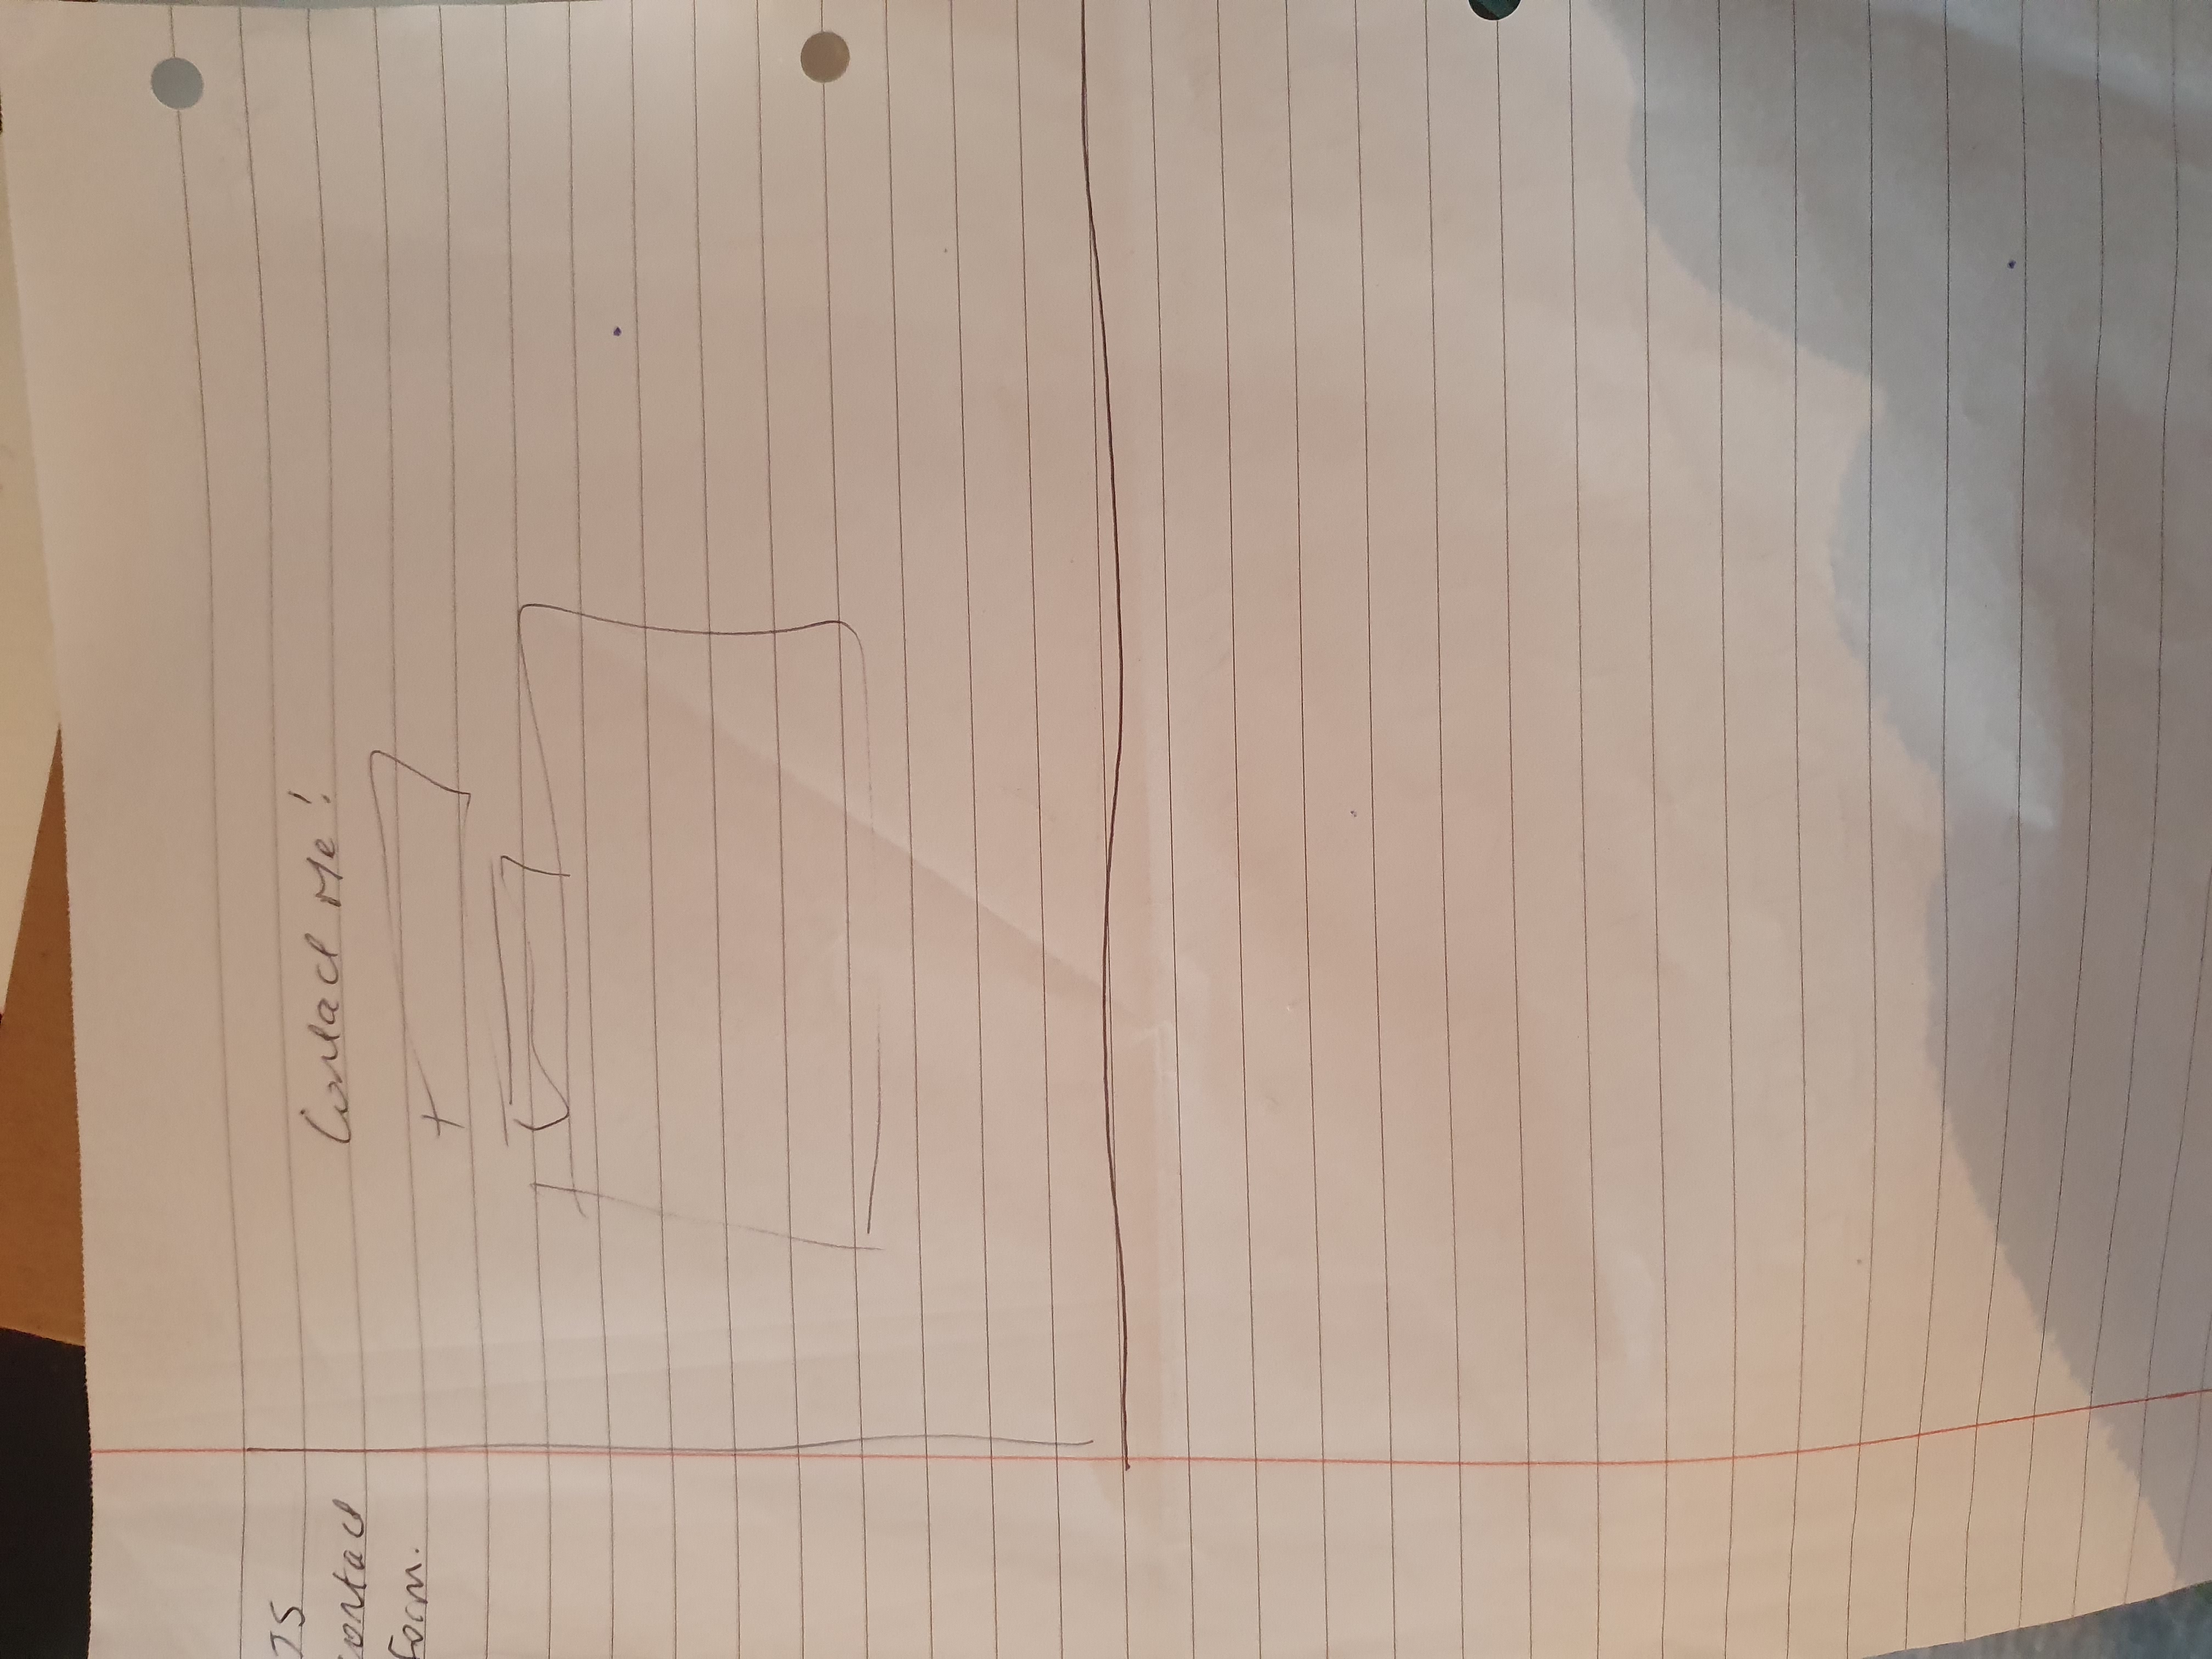 JS
contact
Form.
Contact Me!